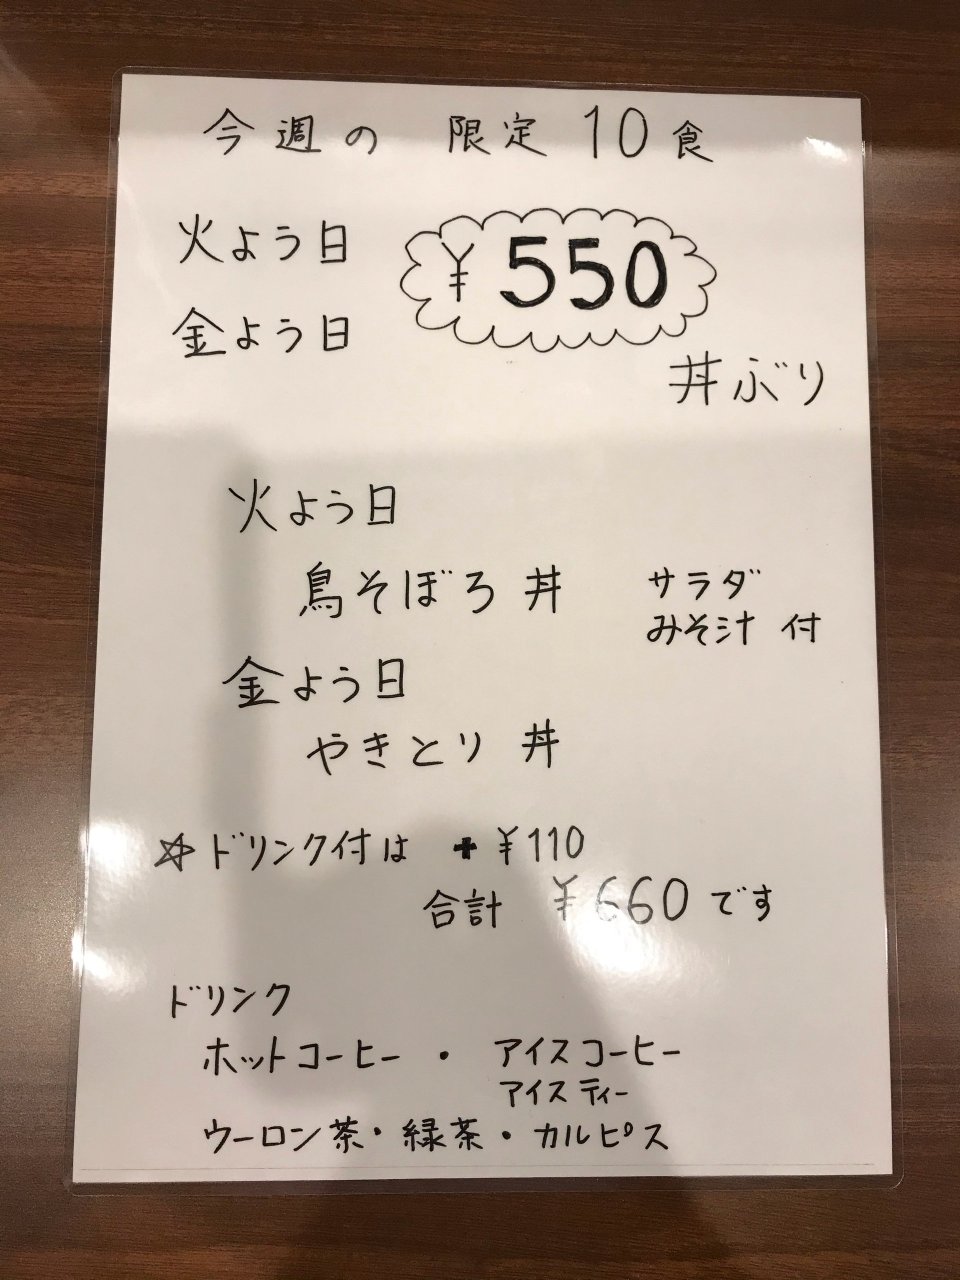 今週の 限定 10食
火よう日
¥550
金よう日
丼ぶり
火よう日
鳥そぼろ丼 サラダ
みそ汁 付
金よう日
やきとり丼
☆ドリンク付は +¥110
合計 ¥660です
ドリンク
ホットコーヒー ・ アイスコーヒー
アイスティー
ウーロン茶・緑茶・カルピス